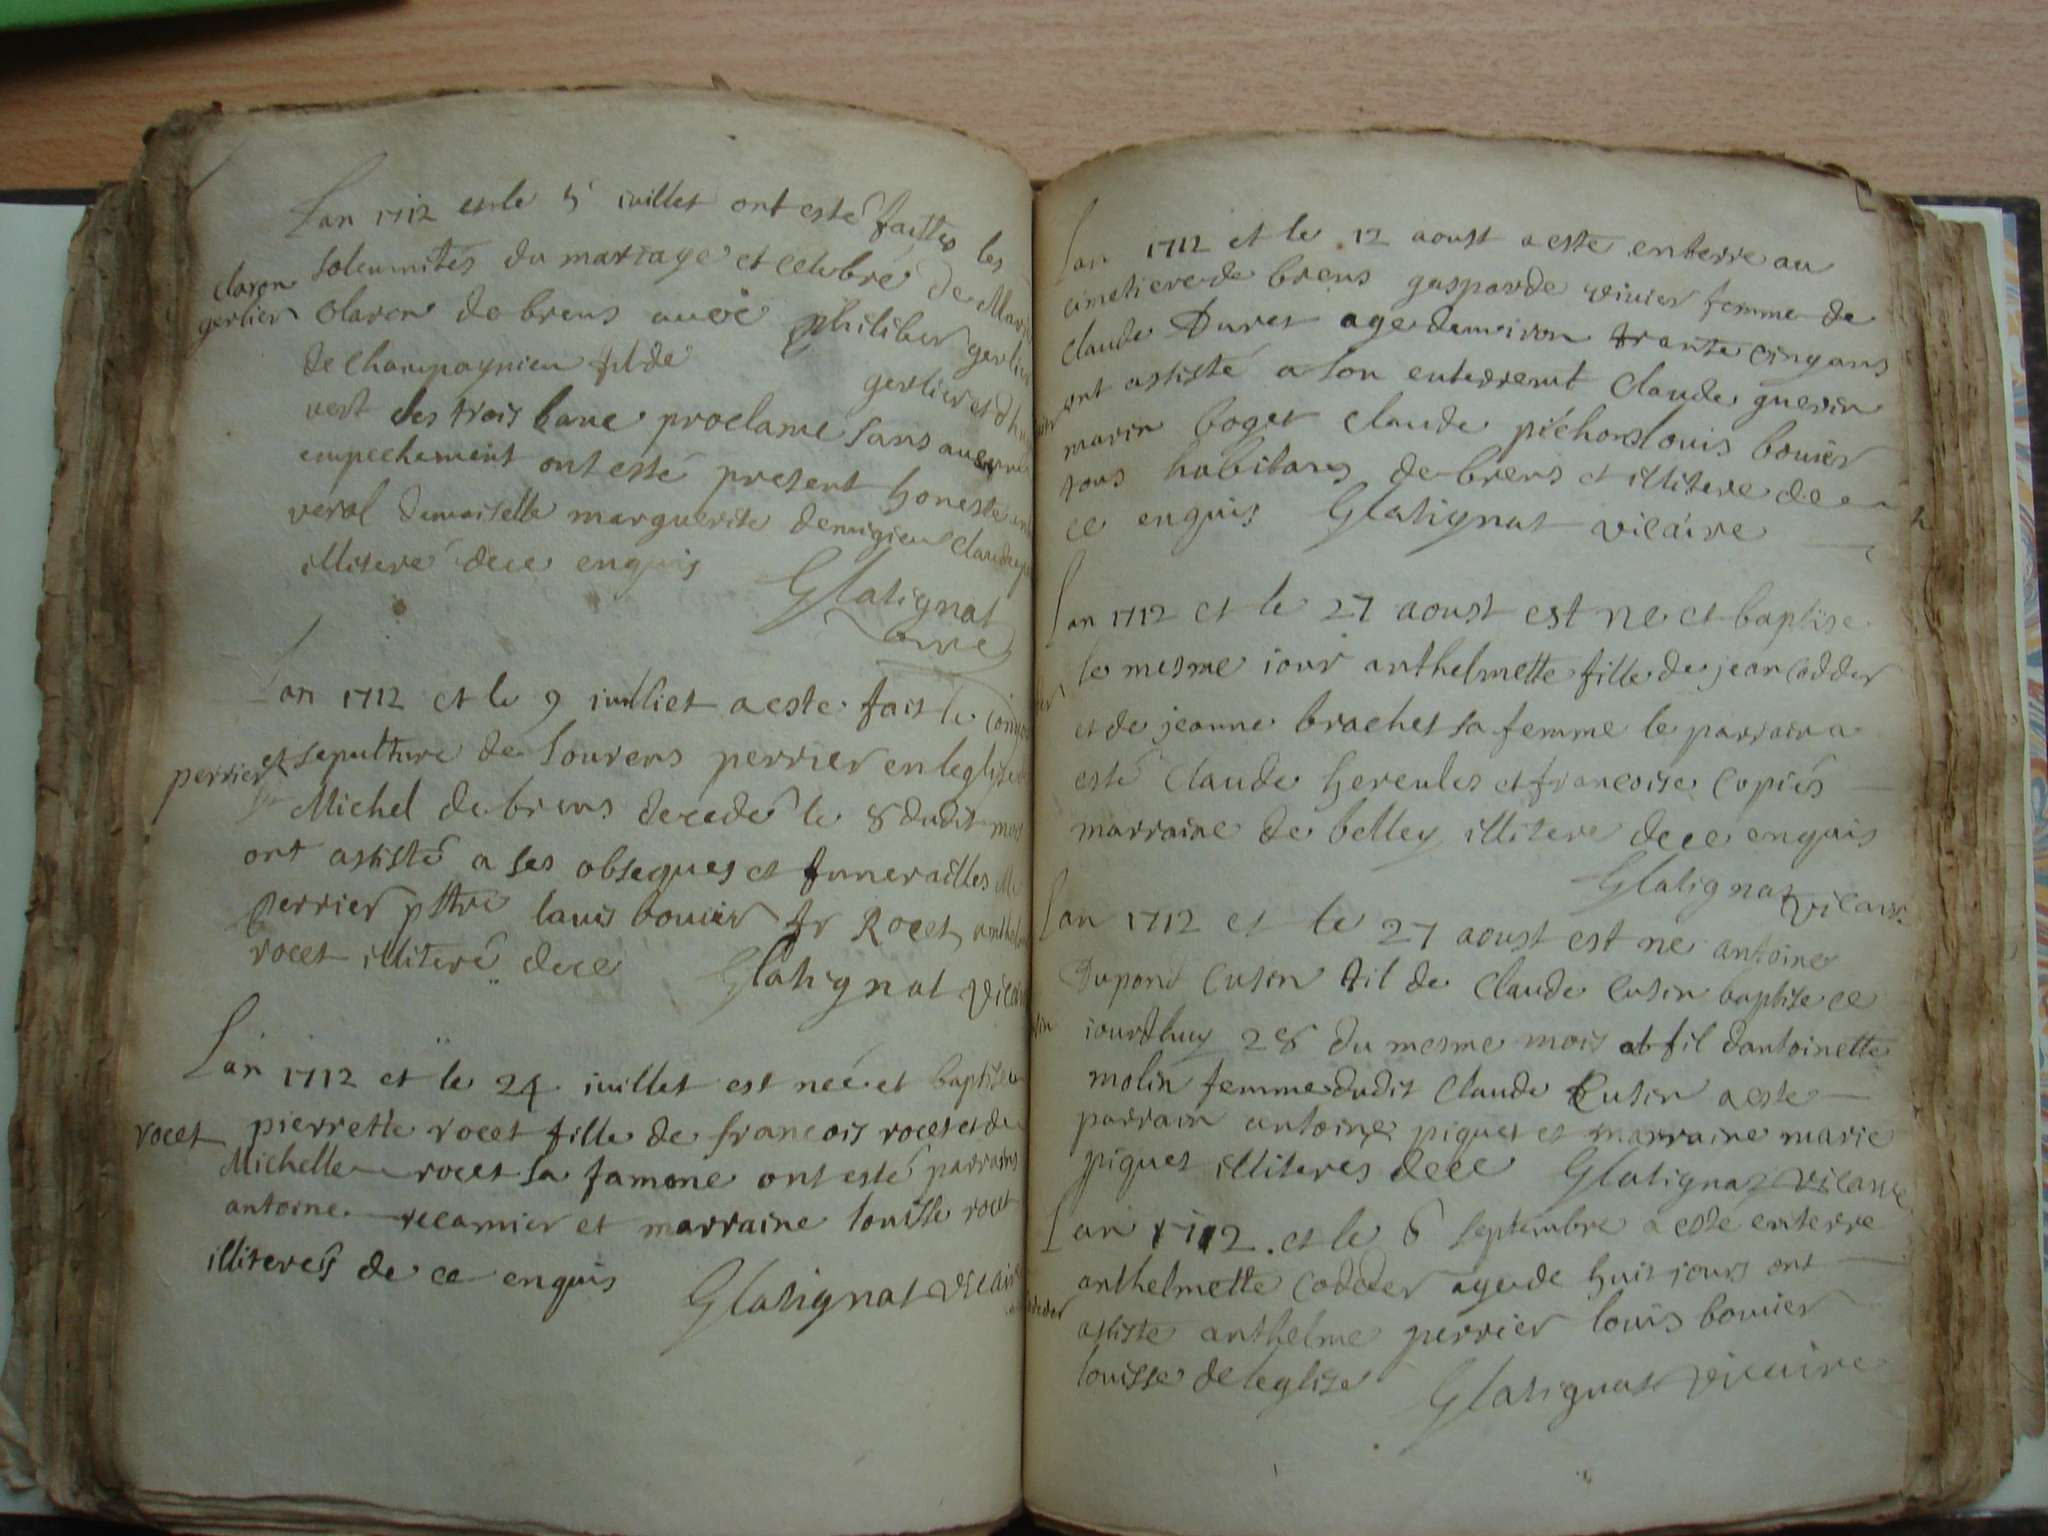 Lan 1712 et le 5 iuillet ont esté faittes les
solemnités du mariage et celebre de Marie
claron
gerlier
Claron de brens avec philiber gerlier
de champagnieu fil de gerlier et d
vert des trois banc proclame sans aucune
empechement ont esté present honeste
demoiselle marguerite demigieu claude
illiteré de ce enquis Glatignat
Lan 1712 et le 9 iuilliet a este fait le
perrier
et sepulture de lourens perrier en leglise
st Michel de brens decedé le 8 dudit mois
ont assisté a ses obseques et funerailles
perrier pttre lauis bouier fr Rocet
rocet illiteré de ce Glatignat vicaire
Lan 1712 et le 24 iuillet est neé et baptisee
rocet
pierrette rocet fille de francois rocet et de
Michelle rocet sa famme ont esté parrains
antoine recamier et marraine louisse rocet
illiterés de ce enquis Glatignat vicaire
Lan 1712 et le 12 aoust a este enterre au
cimetiere de brens gasparde vivier femme de
claude Duret age denviron trante cinq ans
ont assisté a son enterremt Claude guerin
marin boget claude pichon louis bouier
tous habitans de brens et illitere de
ce enquis Glatignat vicaire
Lan 1712 et le 27 aoust est ne et baptise
le mesme iour anthelmette fille de jean codder
et de jeanne brachet sa femme le parrain a
esté Claude hercules et francoise copiés
marraine de belley illitere de ce enquis
Glatignat vicaire
Lan 1712 et le 27 aoust est ne antoine
Dupond Cusin fil de Claude Cusin baptise ce
iourdhuy 28 du mesme mois et fil dantoinette
molin femme dudit Claude Cusin a este
parrain antoine piquet et marraine marie
piquet illiterés de ce Glatignat vicaire
Lan 1712 et le 6 septembre a esté enterre
anthelmette codder agee de huit iours ont
assiste anthelme perrier louis bouier
louisse de leglise Glatignat vicaire